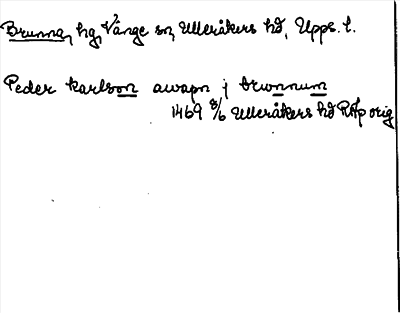 Brunna, hg, Vänge sn, Ulleråkers hd, Upps. l.
Peder karlson awapn j brwnnum
1469 8/6 Ulleråkers hd RAp orig